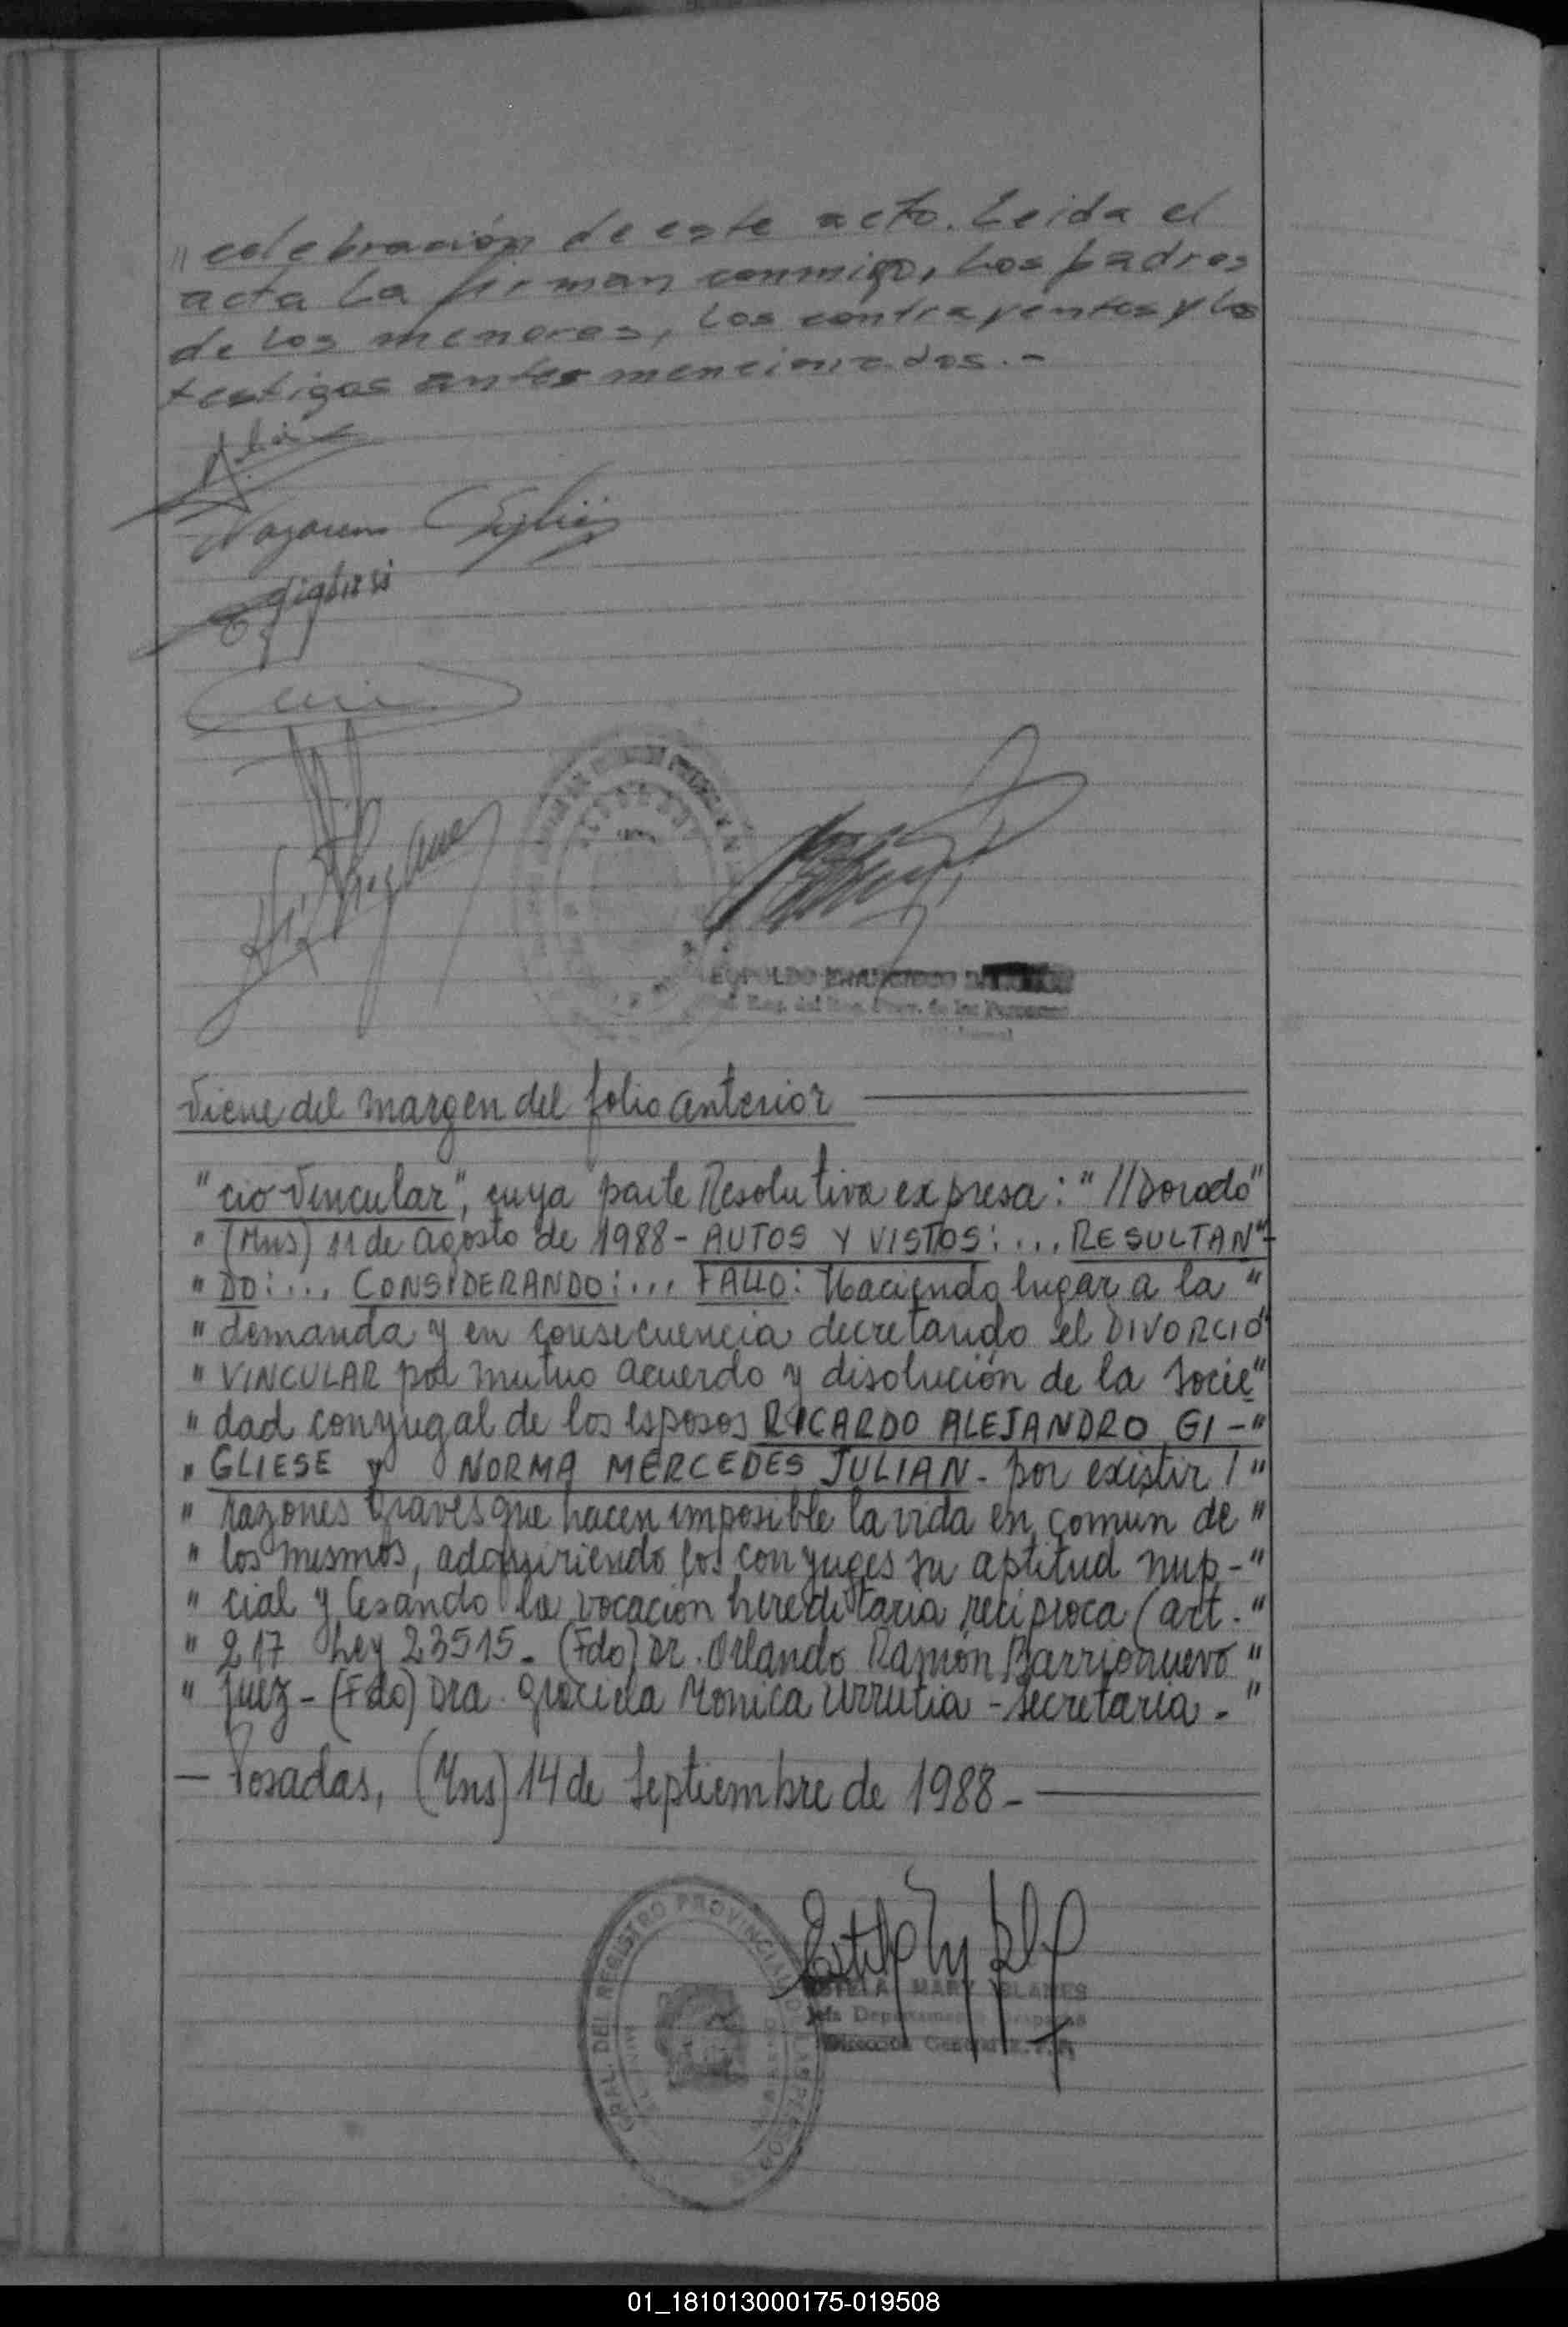 " celebración de este acto. Leida el
acta la firman conmigo, los padres
de los menores, los contrayentes y los
testigos antes mencionados.-
Viene del margen del folio anterior
"cio Vincular", cuya parte Resolutiva expresa: "//Dorado"
"(Mns) 11 de agosto de 1988- AUTOS Y VISTOS:... RESULTAN"-
"DO:... CONSIDERANDO:... FALLO: Haciendo lugar a la "
" demanda y en consecuencia decretando el DIVORCIO"
" VINCULAR por mutuo acuerdo y disolución de la socie"
" dad conyugal de los esposos RICARDO ALEJANDRO GI-"
" GLIESE y NORMA MERCEDES JULIAN- por existir / "
" razones graves que hacen imposible la vida en comun de "
" los mismos, adquiriendo los conyuges su aptitud nup-"
" cial y cesando la vocacion hereditaria reciproca (art. "
" 217 Ley 23515- (Fdo) Dr. Orlando Ramón Barrionuevo "
" juez - (Fdo) Dra. Graciela Monica Urrutia - Secretaria - "
— Posadas, (Mns) 14 de Septiembre de 1988-
GRAL. DEL REGISTRO PROVINCIAL
ESTELA MARY
Dirección General
01_181013000175-019508